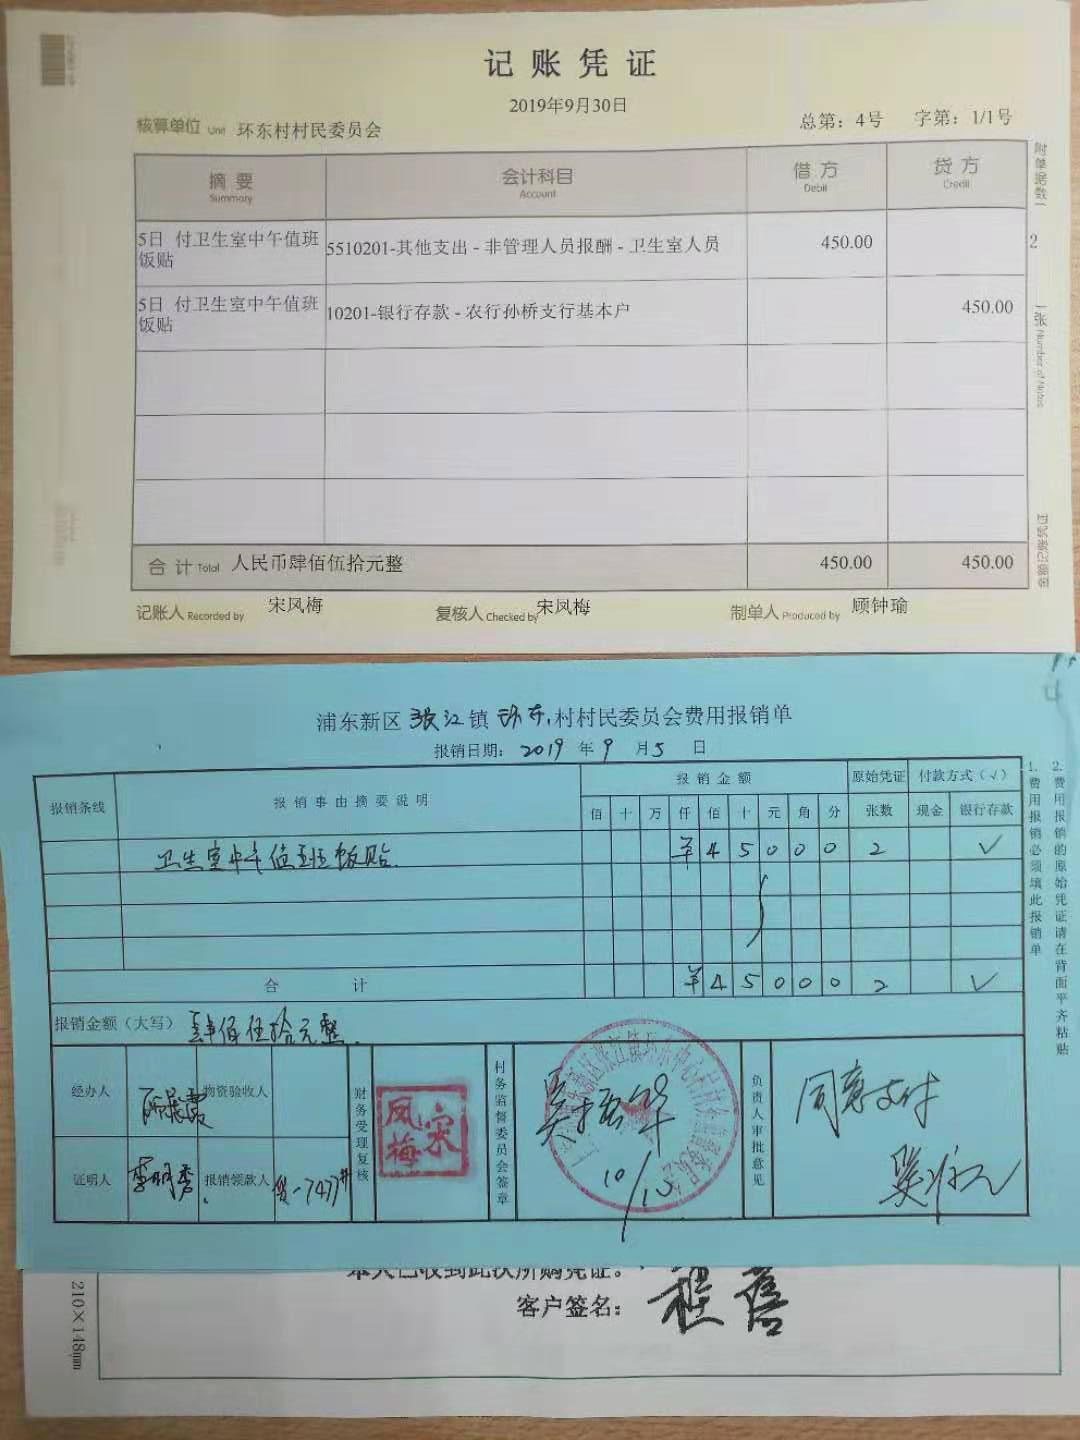 记账凭证
2019年9月30日
核算单位 Unit 环东村村民委员会 总第：4号 字第：1/1号
摘要 Summary 会计科目 Account 借方 Debit 贷方 Credit
5日 付卫生室中午值班饭贴 5510201-其他支出 - 非管理人员报酬 - 卫生室人员 450.00
5日 付卫生室中午值班饭贴 10201-银行存款 - 农行孙桥支行基本户 450.00
合计 Total 人民币肆佰伍拾元整 450.00 450.00
记账人 Recorded by 宋凤梅 复核人 Checked by 宋凤梅 制单人 Produced by 顾钟瑜
附单据数 2 张
浦东新区张江镇环东村村民委员会费用报销单
报销日期：2019年9月5日
报销条线 报销事由摘要说明 报销金额 原始凭证张数 付款方式（√）
佰 十 万 仟 佰 十 元 角 分 现金 银行存款
卫生室中午值班饭贴 ¥45000 2 √
合计 ¥45000 2 √
报销金额（大写） 肆佰伍拾元整
经办人 物资验收人
证明人 李明秀 报销领款人
财务受理复核 宋凤梅
村务监督委员会签章 吴振华 10/15
负责人审批意见 同意支付
1.费用报销必须填此报销单
2.费用报销的原始凭证请在背面平齐粘贴
本人已收到此次所购凭证。
客户签名：
210×148mm